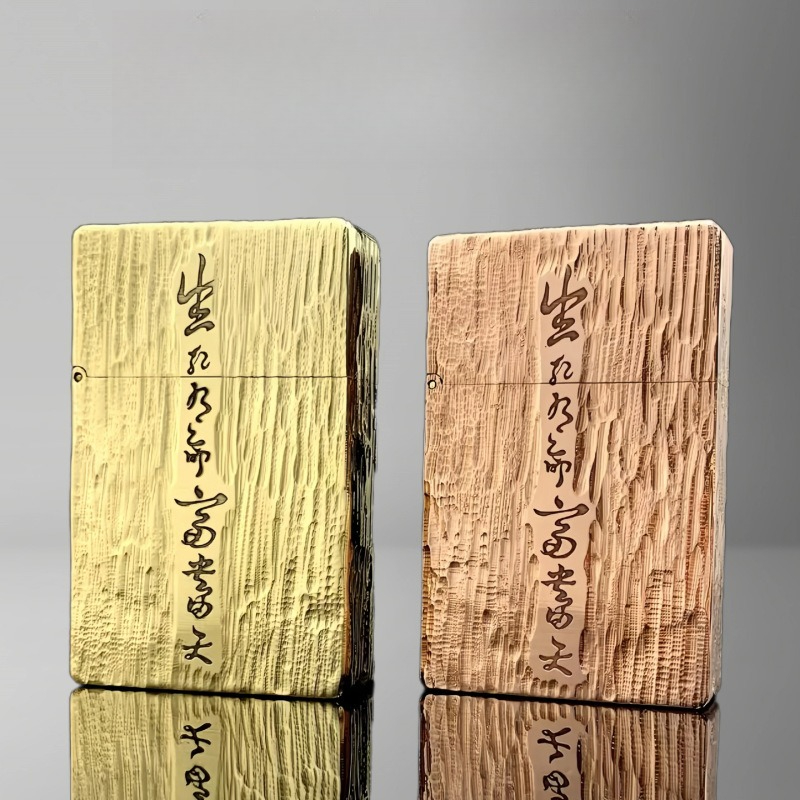 生死有命富貴天
生死有命富貴天